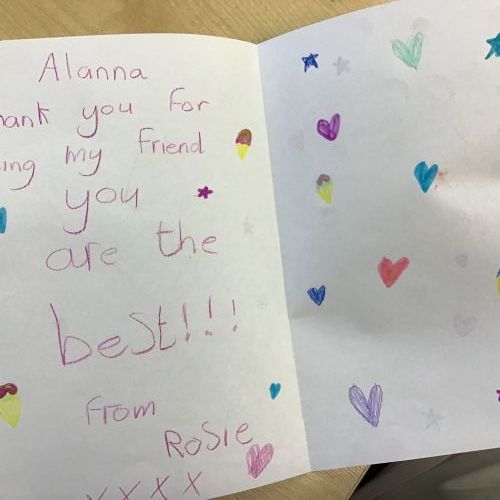 Alanna
hank you for
ing my friend
you
are the
best!!!
From
Rosie
x x x x